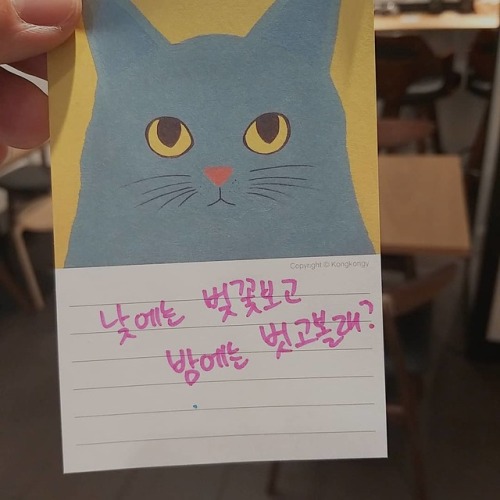 Copyright © Kongkongy
낮에는 벚꽃보고
밤에는 벗고볼래?